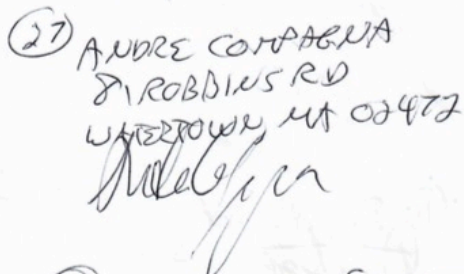 (27) ANDRE COMPAGNA
81 ROBBINS RD
WATERTOWN, MA 02472